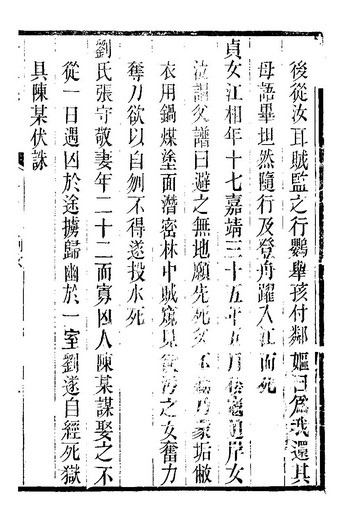 後從汝耳賊監之行鸚舉孩付鄰嫗曰爲我還其
母語畢坦然隨行及登舟躍入江而死
貞女江相年十七嘉靖三十五年五月倭寇通岸女
泣謂父譜曰避之無地願先死父不乃蒙垢敝
衣用鍋煤塗面潛密林中賊窺見之女奮力
奪刀欲以自刎不得遂投水死
劉氏張守敬妻年二十二而寡凶人陳某謀娶之不
從一日遇凶於途擄歸幽於一室劉遂自經死獄
具陳某伏誅